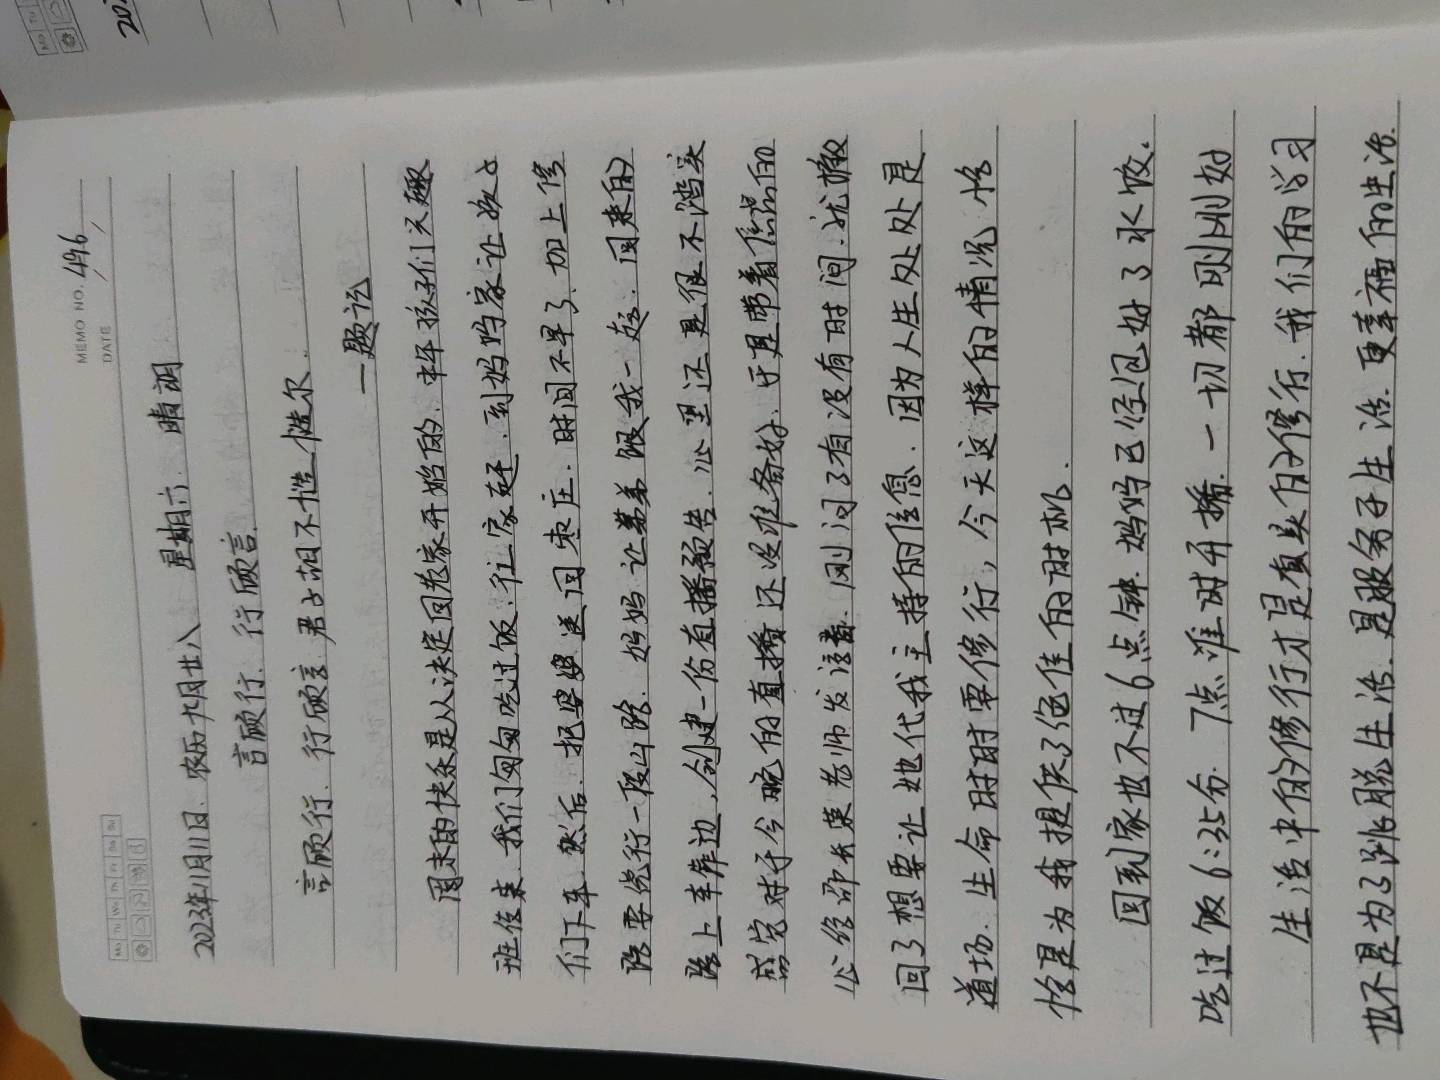 MEMO NO. 496
DATE
Mo Tu We Th Fr Sa Su
2023年11月11日. 农历九月廿八 星期六. 晴朗
言顾行. 行顾言.
言顾行. 行顾言. 君子胡不慥慥尔.
—题记
周末的快乐是从决定回老家开始的. 中午孩子们兴趣
班结束. 我们匆匆吃过饭. 往家赶. 到妈妈家让孩子
们下车. 然后. 把婆婆送回枣庄. 时间不早了. 加上修
路要绕行一段山路. 妈妈让弟弟跟我一起. 回来的
路上车靠边. 创建一份直播预告. 心里还是很不踏实
感觉对于今晚的直播还没准备好. 于是带着焦虑的
心给邵长荣老师发语音. 刚问了有没有时间. 就撤
回了想要让她代我主持的信息. 因为人生处处是
道场. 生命时时要修行, 今天这样的情况恰
恰是为我提供了绝佳的时机.
回到家也不过6点钟. 妈妈已经包好了水饺.
吃过饭6:35分. 7点准时开播. 一切都刚刚好
生活中的修行才是真真的修行. 我们的学习
也不是为了跳脱生活. 是服务于生活. 更幸福的生活.